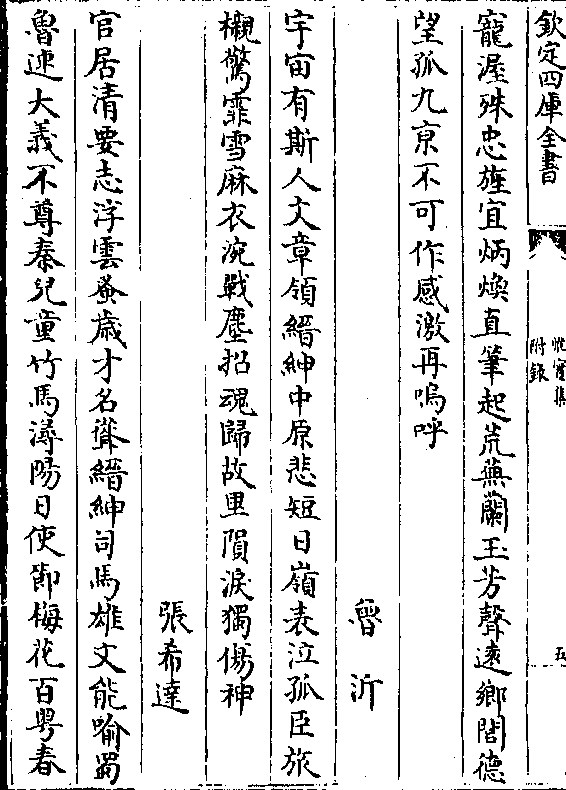 欽定四庫全書
惟實集
附録
五
寵渥殊忠旌宜炳煥直筆起荒蕪蘭玉芳聲逺鄉閭德
望孤九京不可作感激再嗚呼
魯沂
宇宙有斯人文章領縉紳中原悲短日嶺表泣孤臣旅
櫬驚霏雪麻衣涴戰塵招魂歸故里隕淚獨傷神
張希達
官居清要志浮雲蚤歲才名聳縉紳司馬雄文能喻蜀
魯連大義不尊秦兒童竹馬潯陽日使節梅花百粤春